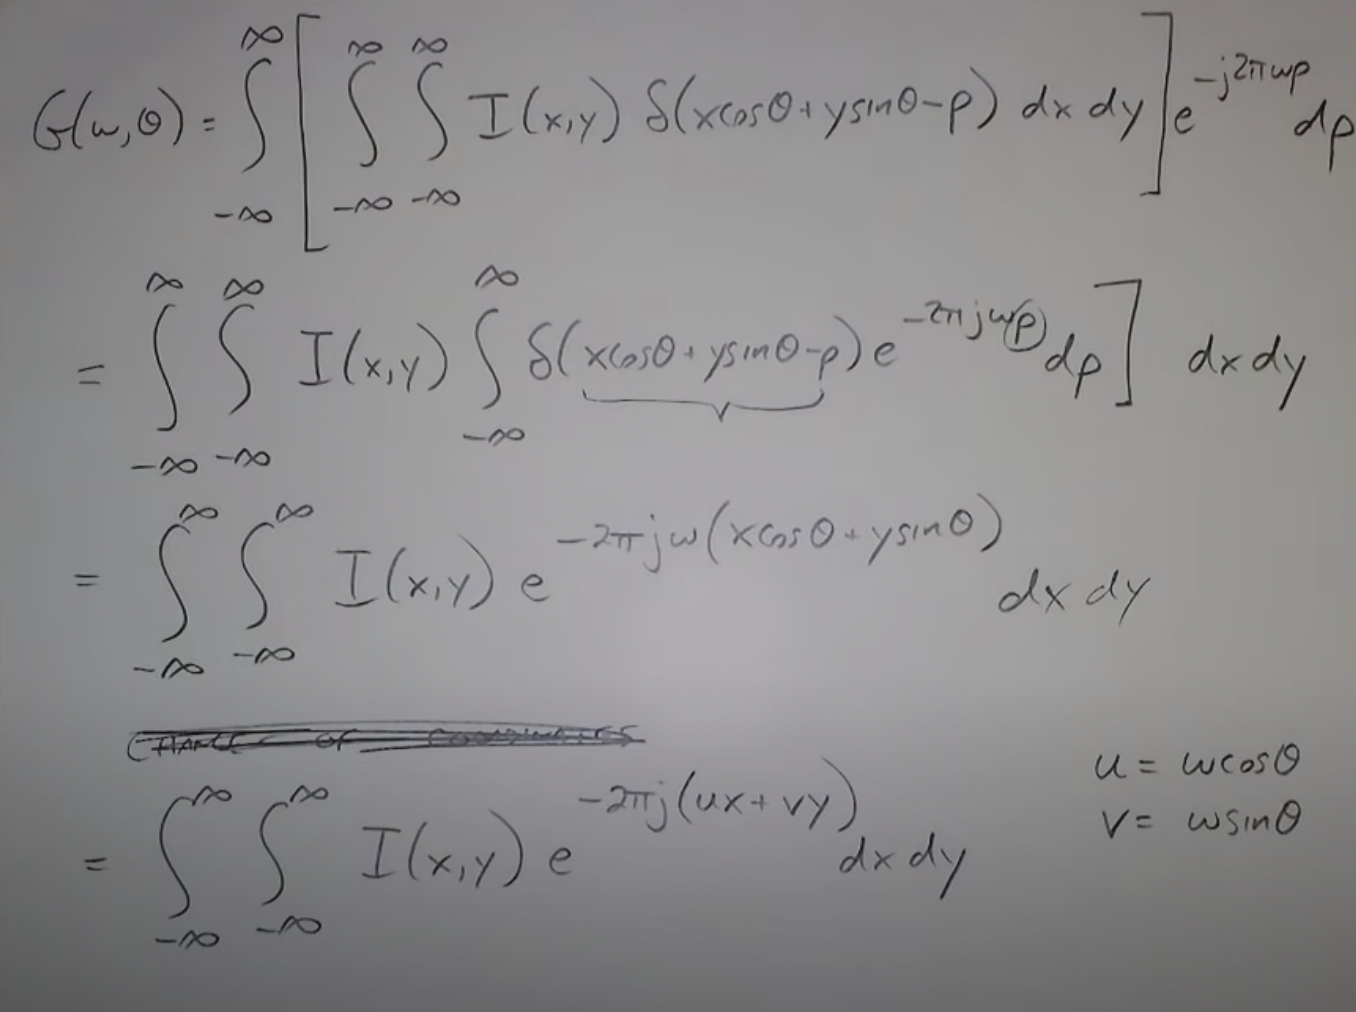 G(ω,θ) = ∫_{-∞}^{∞} [ ∫_{-∞}^{∞} ∫_{-∞}^{∞} I(x,y) δ(xcosθ + ysinθ - ρ) dx dy ] e^{-j2πωρ} dρ
= ∫_{-∞}^{∞} ∫_{-∞}^{∞} I(x,y) ∫_{-∞}^{∞} δ(xcosθ + ysinθ - ρ) e^{-2πjωρ} dρ ] dx dy
= ∫_{-∞}^{∞} ∫_{-∞}^{∞} I(x,y) e^{-2πjω(xcosθ + ysinθ)} dx dy
CHANGE OF COORDINATES
= ∫_{-∞}^{∞} ∫_{-∞}^{∞} I(x,y) e^{-2πj(ux + vy)} dx dy
u = ωcosθ
v = ωsinθ